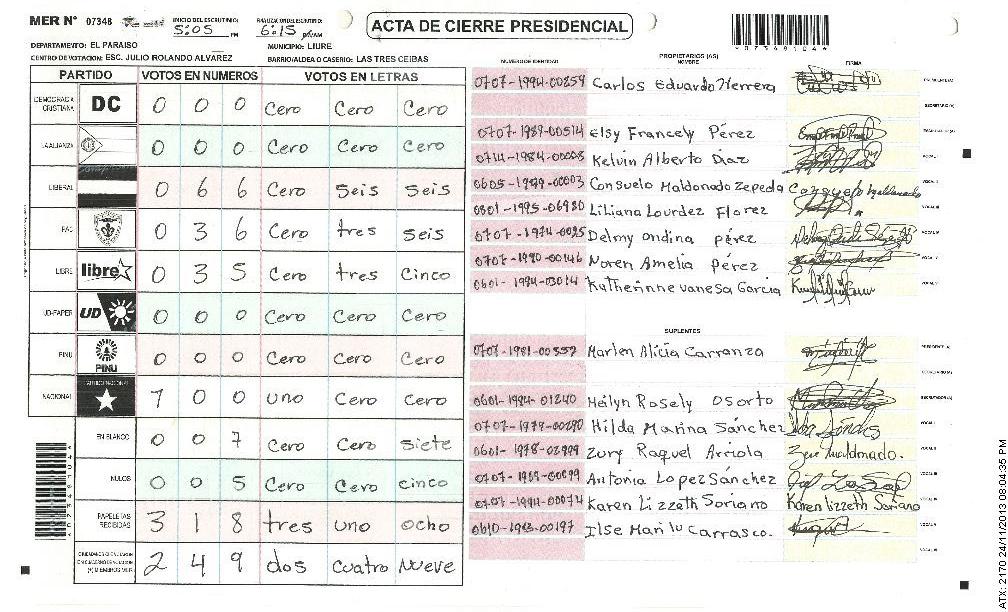 MER N° 07348
INICIO DEL ESCRUTINIO: 5:05 PM
FINALIZACION DEL ESCRUTINIO: 6:15 PM/AM
ACTA DE CIERRE PRESIDENCIAL
*07348104*
DEPARTAMENTO: EL PARAISO
MUNICIPIO: LIURE
CENTRO DE VOTACION: ESC. JULIO ROLANDO ALVAREZ
BARRIO/ALDEA O CASERIO: LAS TRES CEIBAS
PARTIDO VOTOS EN NUMEROS VOTOS EN LETRAS
DEMOCRACIA CRISTIANA DC 0 0 0 Cero Cero Cero
LA ALIANZA 0 0 0 Cero Cero Cero
LIBERAL 0 6 6 Cero Seis Seis
PAC 0 3 6 Cero tres Seis
LIBRE libre 0 3 5 Cero tres Cinco
UD-FAPER UD 0 0 0 Cero Cero Cero
PINU PINU 0 0 0 Cero Cero Cero
NACIONAL PARTIDO NACIONAL 1 0 0 uno Cero Cero
EN BLANCO 0 0 7 Cero Cero siete
NULOS 0 0 5 Cero Cero cinco
PAPELETAS RECIBIDAS 3 1 8 tres uno ocho
CIUDADANOS QUE VOTARON EN CUADERNO DE VOTACION (+) MIEMBROS MER 2 4 9 dos cuatro Nueve
NUMERO DE IDENTIDAD PROPIETARIOS (AS) NOMBRE FIRMA
0707-1994-00259 Carlos Eduardo Herrera PRESIDENTE(A)
SECRETARIO (A)
0707-1989-00514 Elsy Francely Pérez ESCRUTADOR (A)
0714-1984-00008 Kelvin Alberto Diaz VOCAL I
0605-1979-00003 Consuelo Maldonado Zepeda Consuelo Maldonado VOCAL II
0801-1995-06980 Liliana Lourdez Florez VOCAL III
0707-1974-0025 Delmy ondina pérez VOCAL IV
0707-1990-00146 Noren Amelia pérez VOCAL V
0601-1994-03014 Katherinne vanesa Garcia VOCAL VI
SUPLENTES
0707-1981-00352 Marlen Alicia Carranza PRESIDENTE (A)
SECRETARIO (A)
0601-1994-01240 Heilyn Rosely Osorto ESCRUTADOR (A)
0707-1979-00290 Hilda Marina Sánchez VOCAL I
0601-1978-02999 Zury Raquel Arriola VOCAL II
0707-1969-00099 Antonia Lopez Sánchez VOCAL III
0707-1994-00074 Karen Lizzeth Soriano Karen lizzeth Soriano VOCAL IV
0610-1983-00197 Ilse Mari lu Carrasco. VOCAL V
VOCAL VI
ATX: 2170 24/11/2013 08:04:35 PM